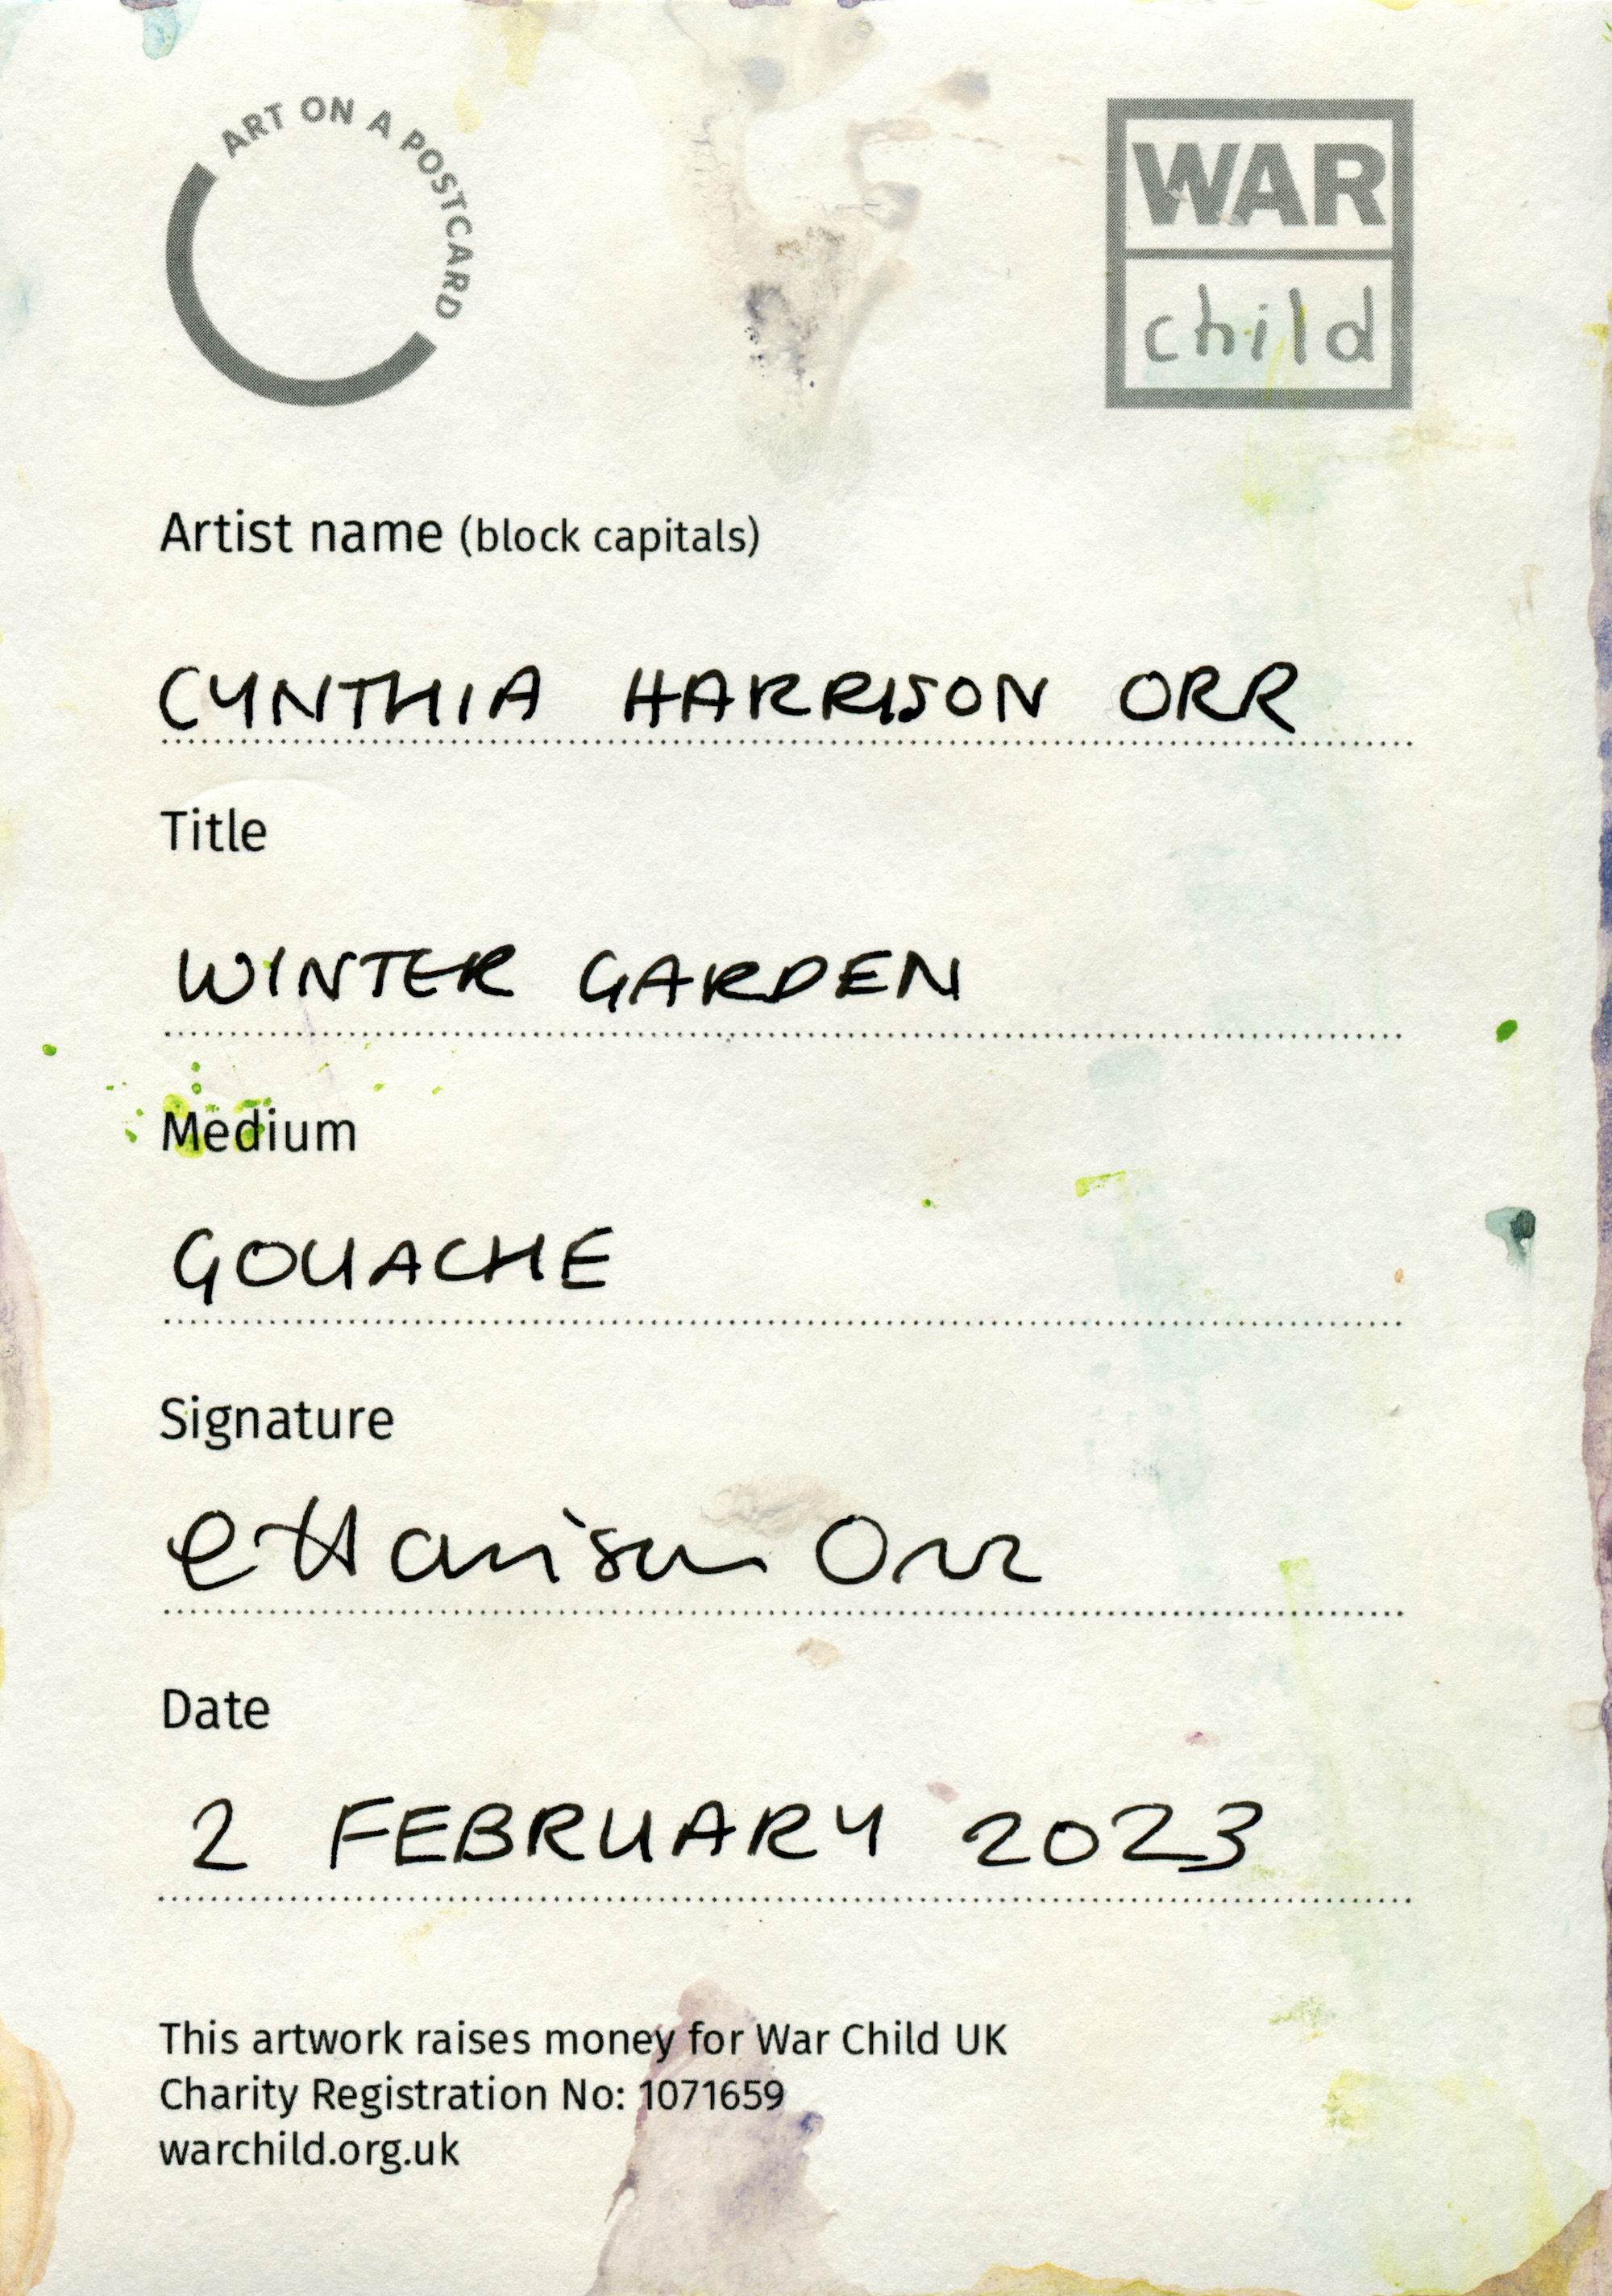 ART ON A POSTCARD
WAR
child
Artist name (block capitals)
CYNTHIA HARRISON ORR
Title
WINTER GARDEN
Medium
GOUACHE
Signature
C Harrison Orr
Date
2 FEBRUARY 2023
This artwork raises money for War Child UK
Charity Registration No: 1071659
warchild.org.uk